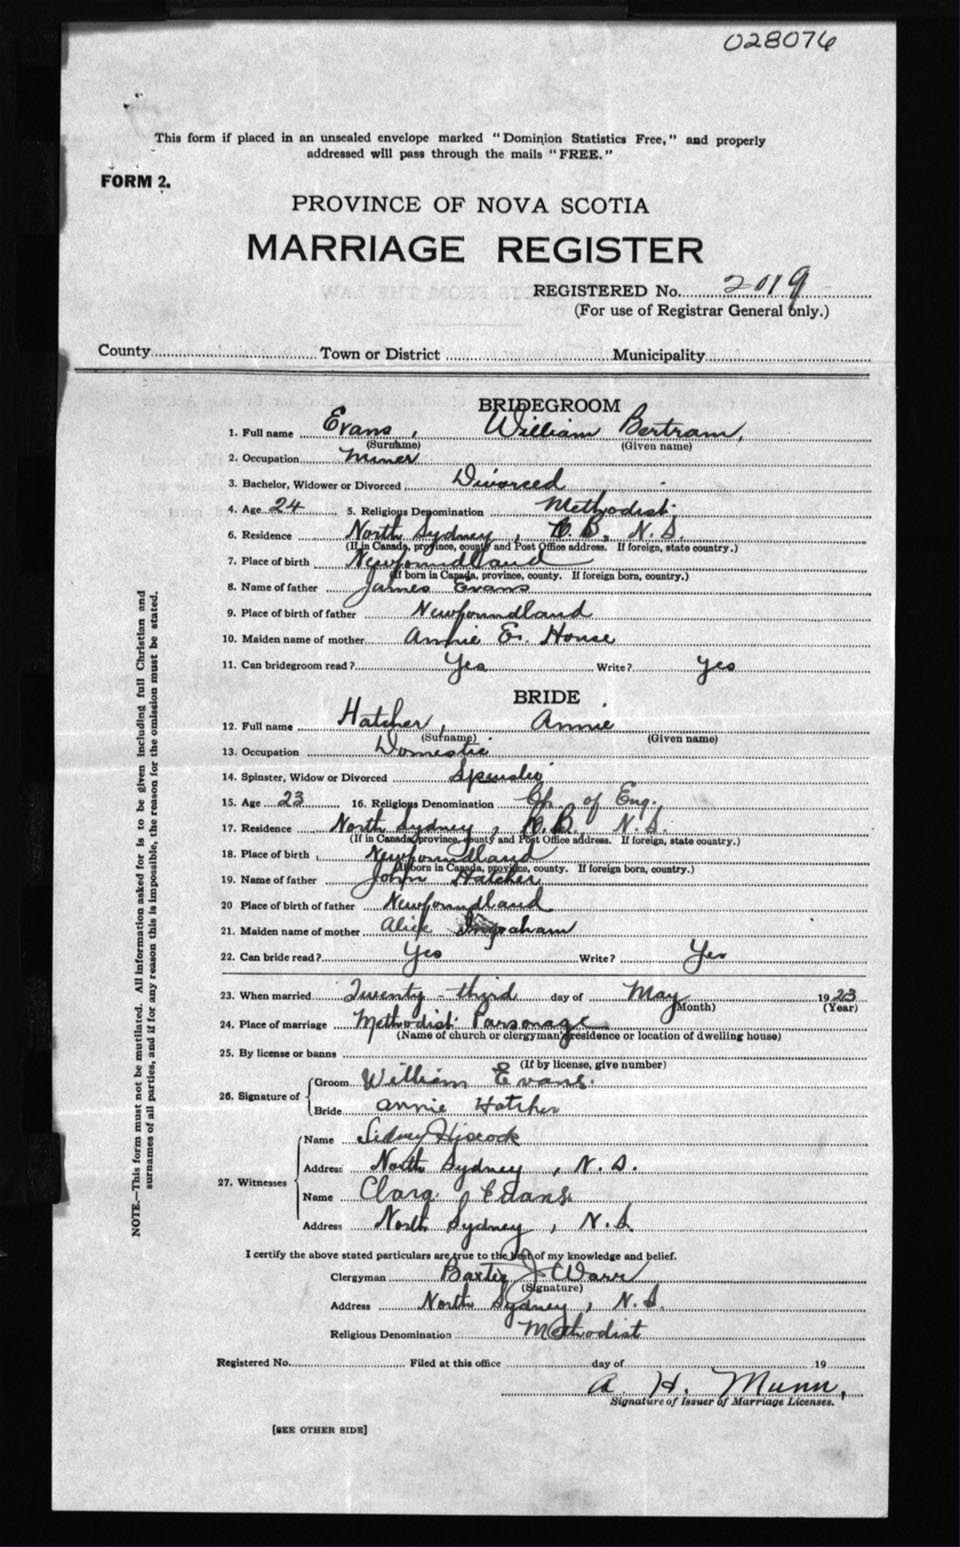 028076
This form if placed in an unsealed envelope marked "Dominion Statistics Free," and properly
addressed will pass through the mails "FREE."
FORM 2.
PROVINCE OF NOVA SCOTIA
MARRIAGE REGISTER
REGISTERED No. 2019
(For use of Registrar General only.)
County Town or District Municipality
BRIDEGROOM
1. Full name Evans, William Bertram,
(Surname) (Given name)
2. Occupation Miner
3. Bachelor, Widower or Divorced Divorced
4. Age 24 5. Religious Denomination Methodist
6. Residence North Sydney, C.B., N.S.
(If in Canada, province, county and Post Office address. If foreign, state country.)
7. Place of birth Newfoundland
(If born in Canada, province, county. If foreign born, country.)
8. Name of father James Evans
9. Place of birth of father Newfoundland
10. Maiden name of mother Annie E. House
11. Can bridegroom read? Yes Write? Yes
BRIDE
12. Full name Hatcher, Annie
(Surname) (Given name)
13. Occupation Domestic
14. Spinster, Widow or Divorced Spinster
15. Age 23 16. Religious Denomination Ch. of Eng.
17. Residence North Sydney, C.B. N.S.
(If in Canada, province, county and Post Office address. If foreign, state country.)
18. Place of birth Newfoundland
(If born in Canada, province, county. If foreign born, country.)
19. Name of father John Hatcher
20 Place of birth of father Newfoundland
21. Maiden name of mother Alice Ingraham
22. Can bride read? Yes Write? Yes
23. When married Twenty-third day of May 1923
(Month) (Year)
24. Place of marriage Methodist Parsonage
(Name of church or clergyman's residence or location of dwelling house)
25. By license or banns
(If by license, give number)
26. Signature of Groom William Evans.
Bride Annie Hatcher
27. Witnesses Name Sidney Hiscock
Address North Sydney, N.S.
Name Clara Evans
Address North Sydney, N.S
I certify the above stated particulars are true to the best of my knowledge and belief.
Clergyman Baxter J Warr
(Signature)
Address North Sydney, N.S.
Religious Denomination Methodist
Registered No. Filed at this office day of 19
A. H. Munn,
Signature of Issuer of Marriage Licenses.
[SEE OTHER SIDE]
NOTE.—This form must not be mutilated. All information asked for is to be given including full Christian and
surnames of all parties, and if for any reason this is impossible, the reason for the omission must be stated.